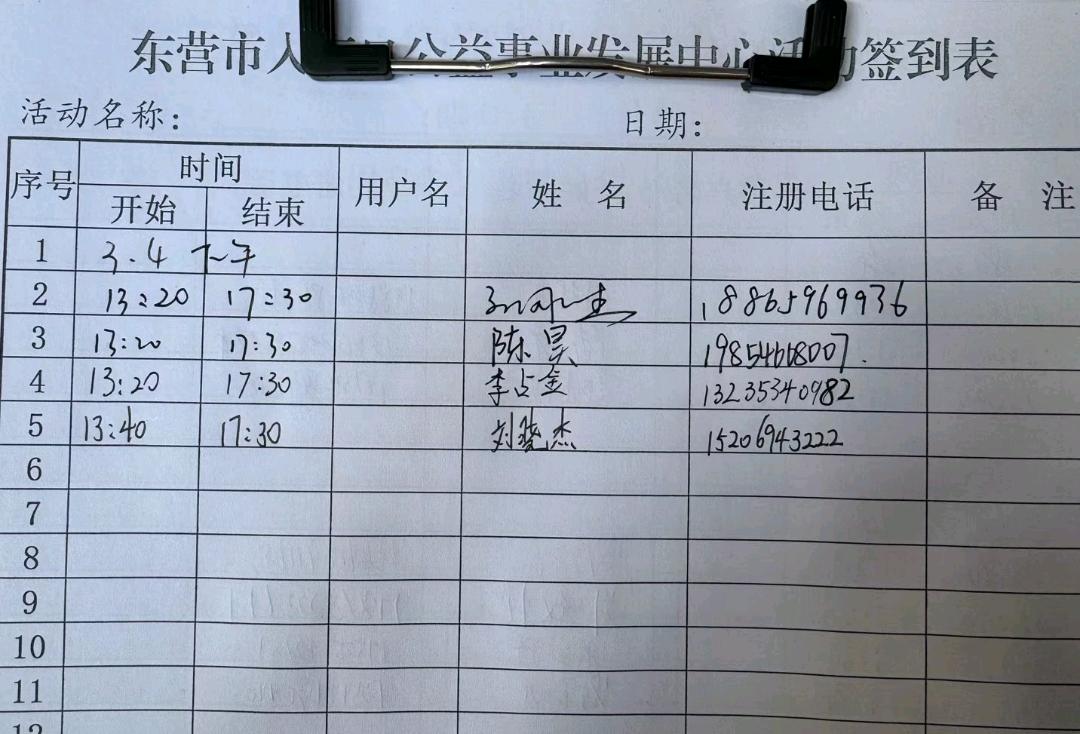 东营市人 公益事业发展中心活动签到表
活动名称: 日期:
序号 时间 用户名 姓 名 注册电话 备 注
开始 结束
1 3.4 下午
2 13:20 17:30 18865969936
3 13:20 17:30 陈昊 19854668007.
4 13:20 17:30 李占金 13235340982
5 13:40 17:30 刘晓杰 15206943222
6
7
8
9
10
11
12